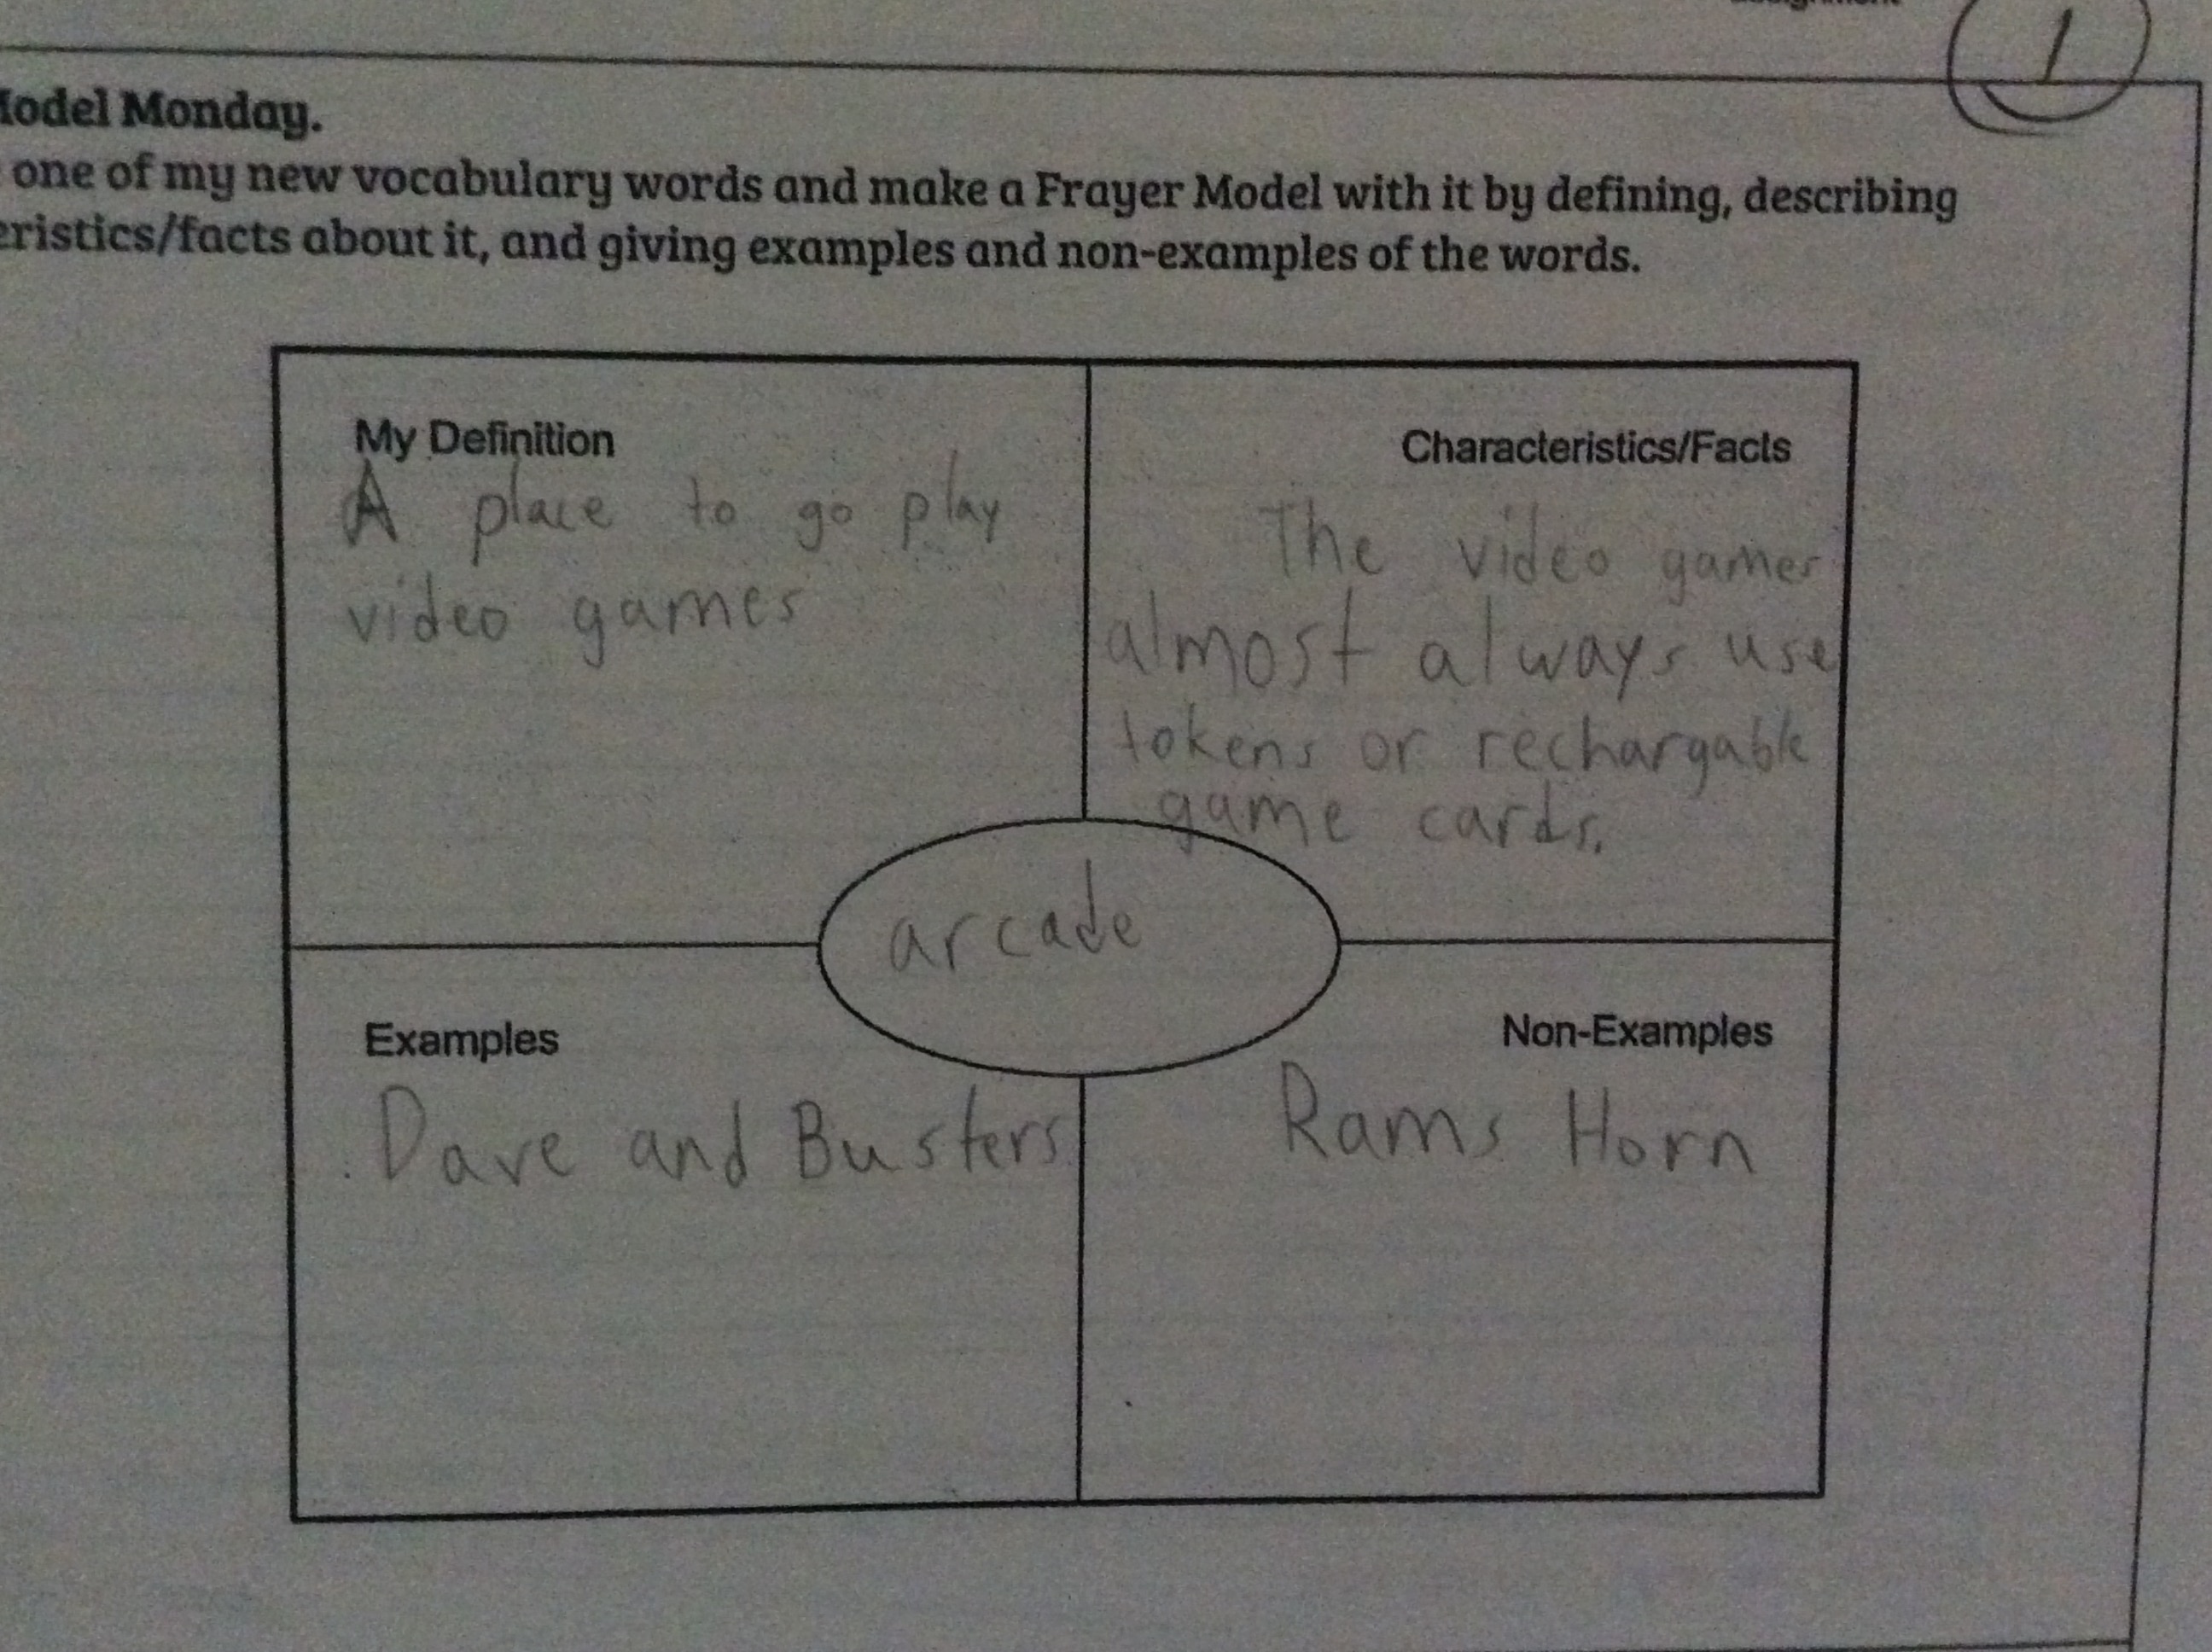 1
Model Monday.
one of my new vocabulary words and make a Frayer Model with it by defining, describing
eristics/facts about it, and giving examples and non-examples of the words.
My Definition
A place to go play
video games
Characteristics/Facts
The video games
almost always use
tokens or rechargable
game cards.
arcade
Examples
Dave and Busters
Non-Examples
Rams Horn